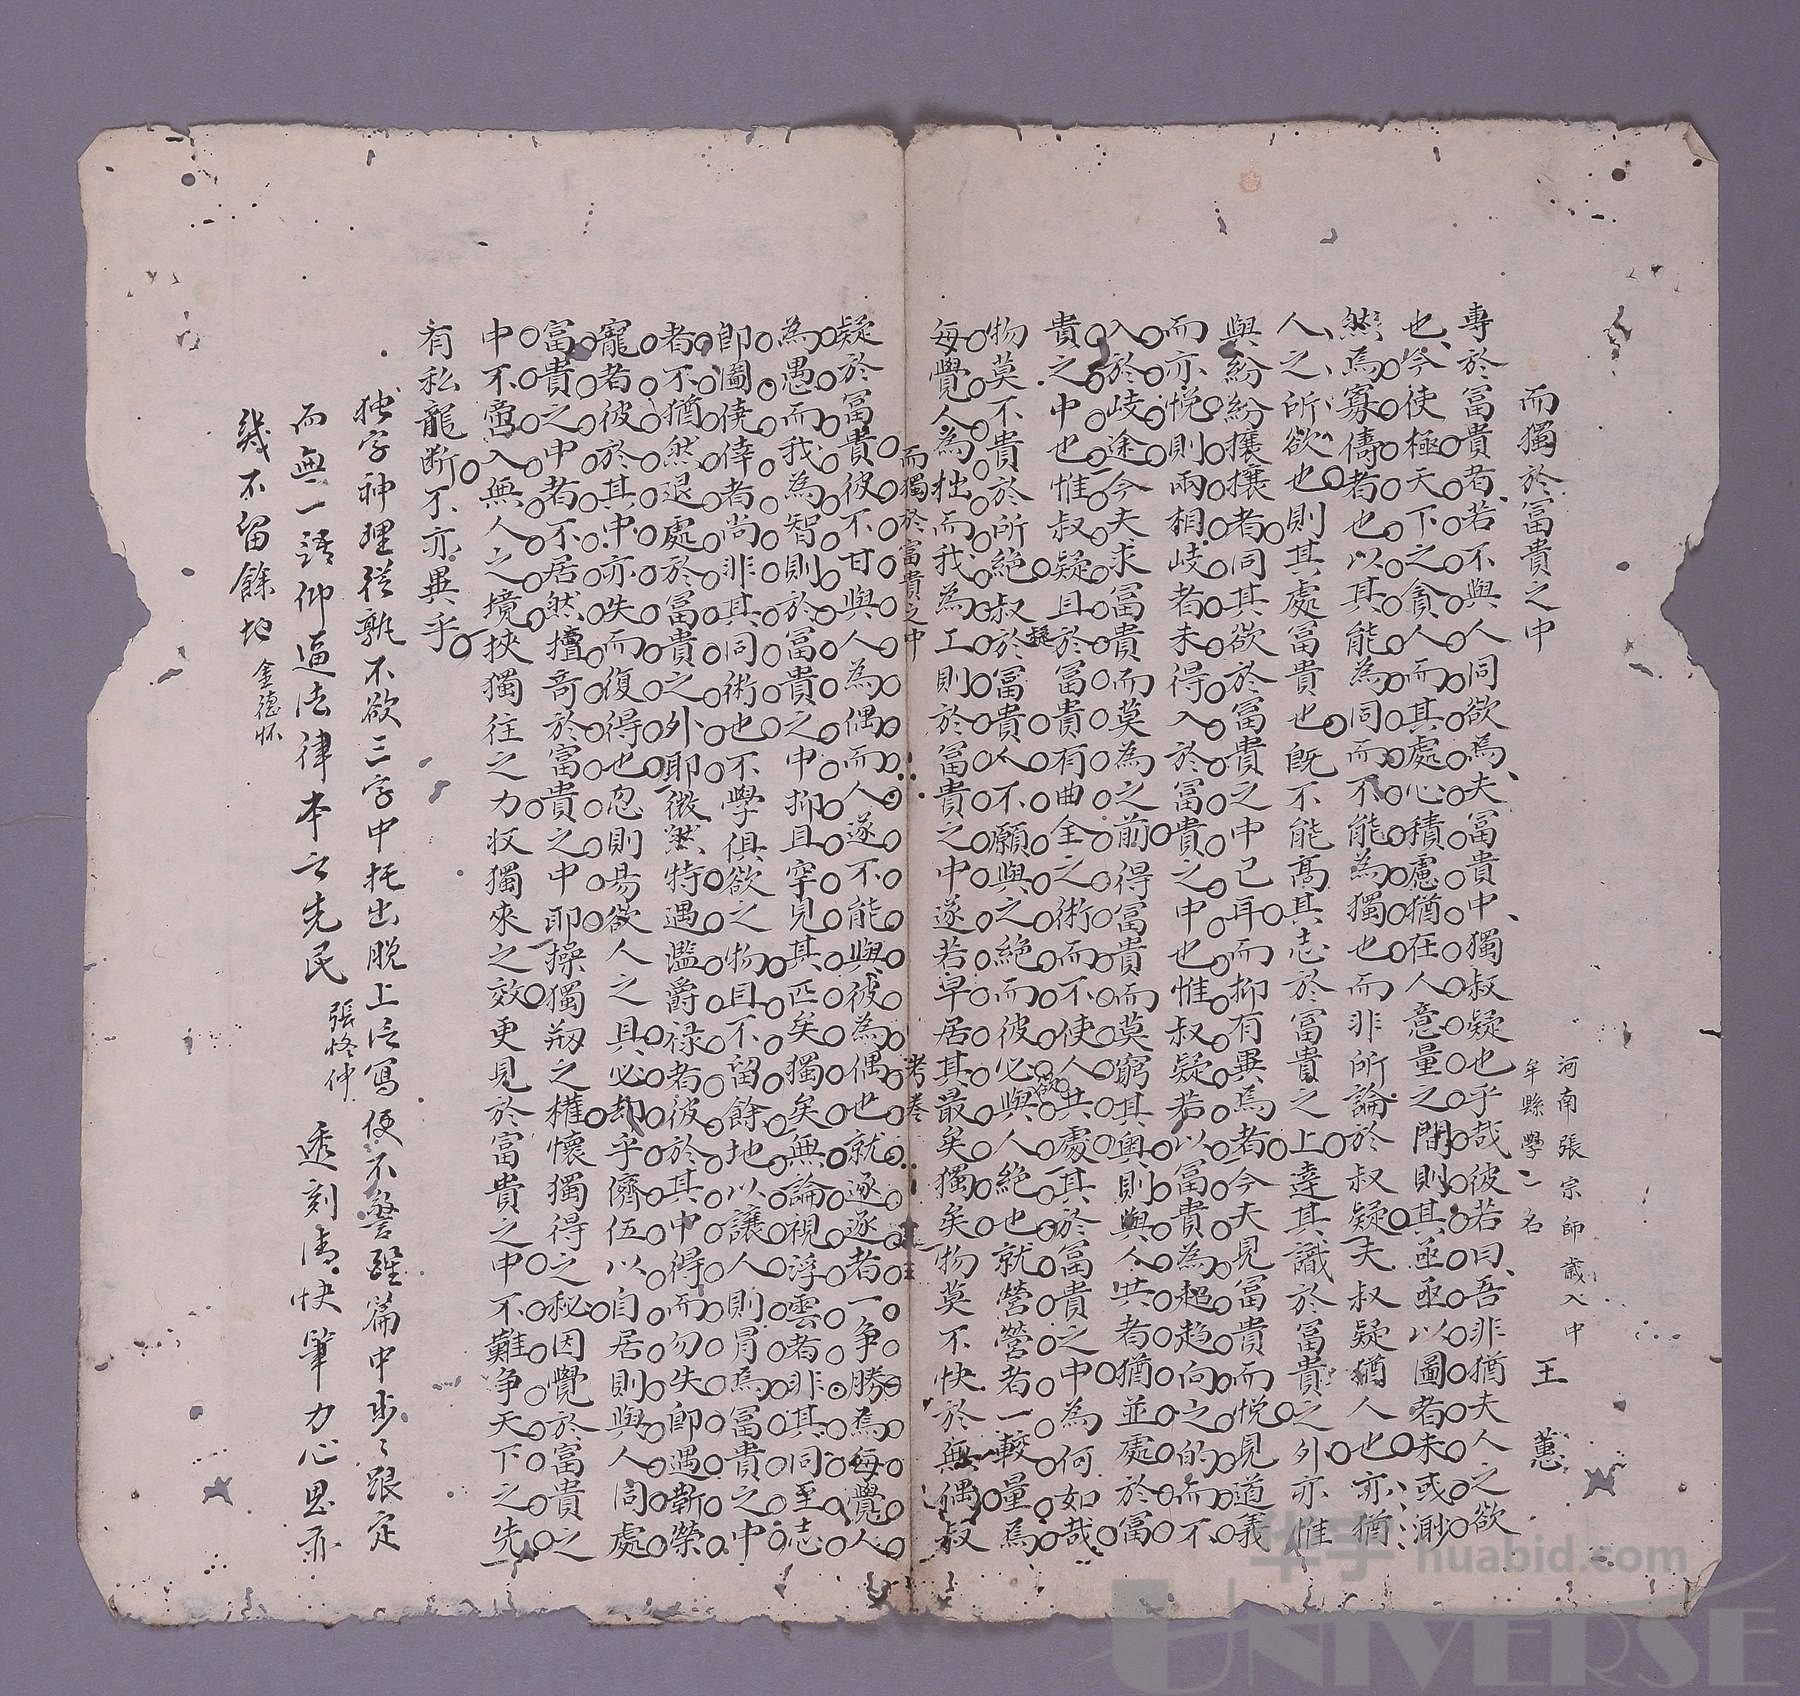 而獨於富貴之中
河南張宗師歲入中
牟縣學二名
王蕙
專於富貴者若不與人同欲焉夫富貴中獨叔疑也乎哉彼若曰吾非猶夫人之欲
也今使極天下之貪人而其處心積慮猶在人意量之間則其亟亟以圖者未或渺
然焉寡儔者也以其能為同而不能為獨也而非所論於叔疑夫叔疑猶人也亦猶
人之所欲也則其處富貴也既不能高其志於富貴之上達其識於富貴之外亦惟
與紛紛攘攘者同其欲於富貴之中已耳而抑有異焉者今夫見富貴而悅見道義
而亦悅則兩相歧者未得入於富貴之中也惟叔疑若以富貴為趨趋向之的而不
入於歧途今夫求富貴而莫為之前得富貴而莫窮其奧則與人共者猶並處於富
貴之中也惟叔疑且於富貴有曲全之術而不使人共處其於富貴之中為何如哉
物莫不貴於所絕叔疑於富貴人不願與之絕而彼必欲與人絕也就營營者一較量焉
每覺人為拙而我為工則於富貴之中遂若早居其最矣獨矣物莫不快於無偶叔
而獨於富貴之中
考卷
疑於富貴彼不甘與人為偶而人遂不能與彼為偶也就逐逐者一爭勝焉每覺人
為愚而我為智則於富貴之中抑且罕見其匹矣獨矣無論視浮雲者非其同志
即圖僥倖者尚非其同術也不學俱欲之物且不留餘地以讓人則胃焉富貴之中
者不猶然退處於富貴之外耶微然特遇濫爵祿者彼於其中得而勿失即遇靳榮
寵者彼於其中亦失而復得也忍則易欲人之具必却乎儕伍以自居則與人同處
富貴之中者不居然擅奇於富貴之中耶操獨擬之權懷獨得之秘因覺於富貴之
中不啻入無人之境挾獨往之力收獨來之效更見於富貴之中不難爭天下之先
有私龍断不亦異乎
独字神理從孰不欲三字中托出脫上泛寫便不警醒篇中步〻跟定
而無一語仰逼法律本之先民 張恪仲 透刻清快筆力心思亦
幾不留餘地 金德怀
华宇 huabid.com
UNIVERSE